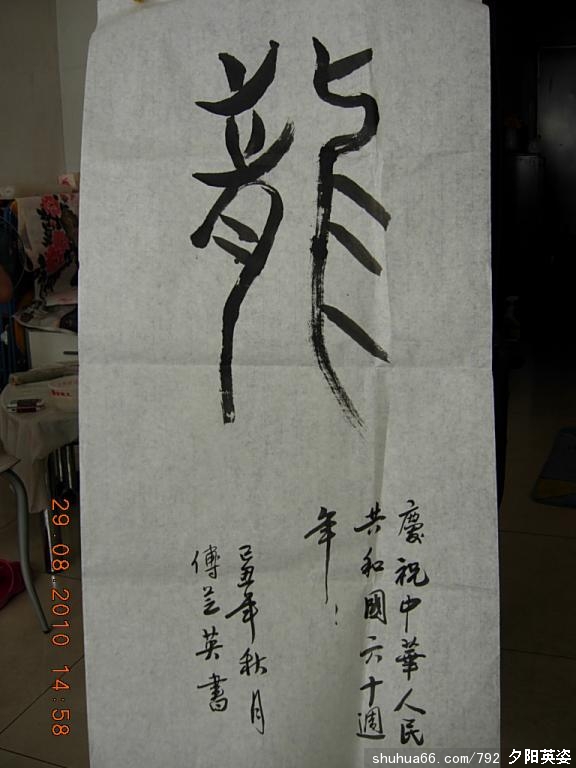 龍
慶祝中華人民
共和國六十週
年！
己丑年秋月
傅芝英書
29.08.2010 14:58
shuhua66.com/792 夕阳英姿